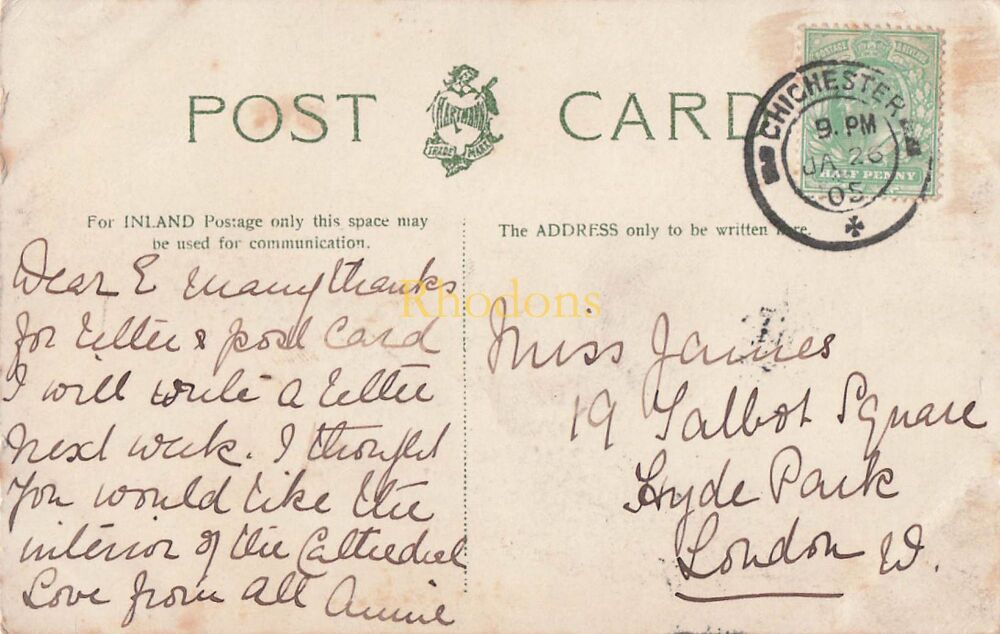 POST CARD
HARTMANN
TRADE MARK
POSTAGE & REVENUE
HALF PENNY
CHICHESTER
9. PM
JA 26
05
For INLAND Postage only this space may
be used for communication.
The ADDRESS only to be written here.
Rhodons
Dear E many thanks
for letter & post card
I will write a letter
next week. I thought
you would like the
interior of the Cathedral
Love from all Annie
Miss James
19 Talbot Square
Hyde Park
London W.